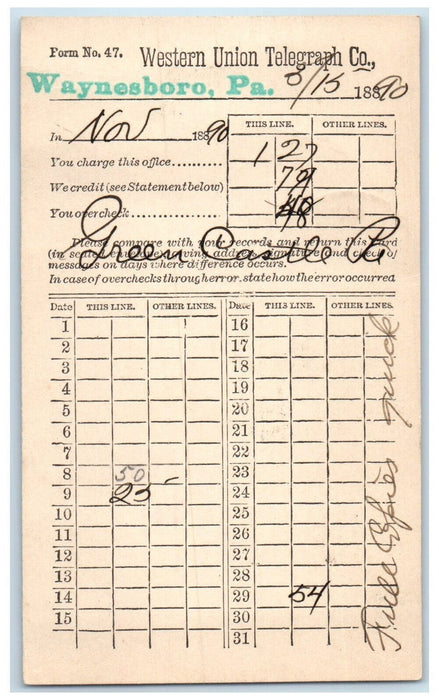 Form No. 47. Western Union Telegraph Co.,
Waynesboro, Pa. 3/15 18890
In Nov 18890 THIS LINE. OTHER LINES.
You charge this office.......... 1 27
We credit (see Statement below) 79
You overcheck 48
Green Castle Pa
Please compare with your records and return this card
(in sealed envelope) giving address, signature and check of
messages on days where difference occurs.
In case of overchecks through error, state how the error occurred
Date THIS LINE. OTHER LINES. Date THIS LINE. OTHER LINES.
1 16
2 17
3 18
4 19
5 20
6 21
7 22
8 50 23
9 25 24
10 25
11 26
12 27
13 28
14 29 54
15 30
31
Full Copies quick